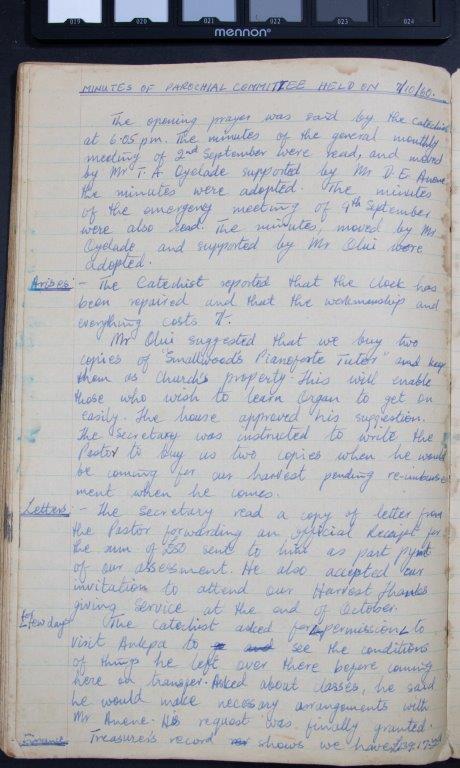 019 020 021 022 023 024
mennon
MINUTES OF PAROCHIAL COMMITTEE HELD ON 7/10/60.
The opening prayer was said by the catechist
at 6.05 pm. The minutes of the general monthly
meeting of 2nd September were read, and moved
by Mr T. A. Oyelade supported by Mr D. E. Anene
the minutes were adopted. The minutes
of the emergency meeting of 9th September
were also read. The minutes, moved by Mr
Oyelade, and supported by Mr Olui were
adopted.
Arises: - The Catechist reported that the clock has
been repaired and that the workmanship and
everything costs
Mr Olui suggested that we buy two
copies of "Smallwoods Pianoforte Tutor" and keep
them as Church's property. This will enable
those who wish to learn Organ to get on
easily. The house approved his suggestion.
The Secretary was instructed to write the
Pastor to buy us two copies when he would
be coming for our harvest pending re-imburse
ment when he comes.
Letters: - The Secretary read a copy of letter from
the Pastor forwarding an official Receipt for
the sum of £50 sent to him as part pymt
of our assessment. He also accepted our
invitation to attend our Harvest thanks
giving Service at the end of October.
for few days The Catechist asked for permission to
visit Ankpa to see the conditions
of things he left over there before coming
here on transfer. Asked about classes, he said
he would make necessary arrangements with
Mr Anene. His request was finally granted.
Finance: Treasurer's record shows we have